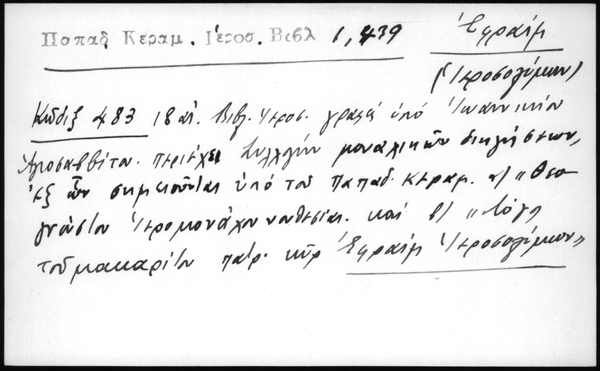 Παπαδ Κεραμ. Ἱεροσ. Βιβλ 1,439
Ἐφραίμ
(Ἱεροσολύμων)
Κώδιξ 483 18 αἰ. Βιβλ. Ἱεροσ. γραφεὶς ὑπὸ Ἰωαννικίου
Ἁγιοσαββίτου. περιέχει Συλλογὴν μοναχικῶν διηγήσεων,
ἐξ ὧν σημειοῦται ὑπὸ τοῦ Παπαδ. Κεραμ. α) "Θεο
γνώστου Ἱερομονάχου νουθεσίαι. καὶ β) "Λόγοι
τοῦ μακαρίτου πατρ. κὺρ Ἐφραὶμ Ἱεροσολύμων"